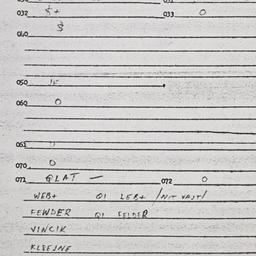 032 033 0
040
050
060 0
061
070 0
071 GLAT — 072 0
WEB+ 01 LEB+ /NIT VAST/
FEWDER 01 FELDER
VINCIK
KLEEJNE